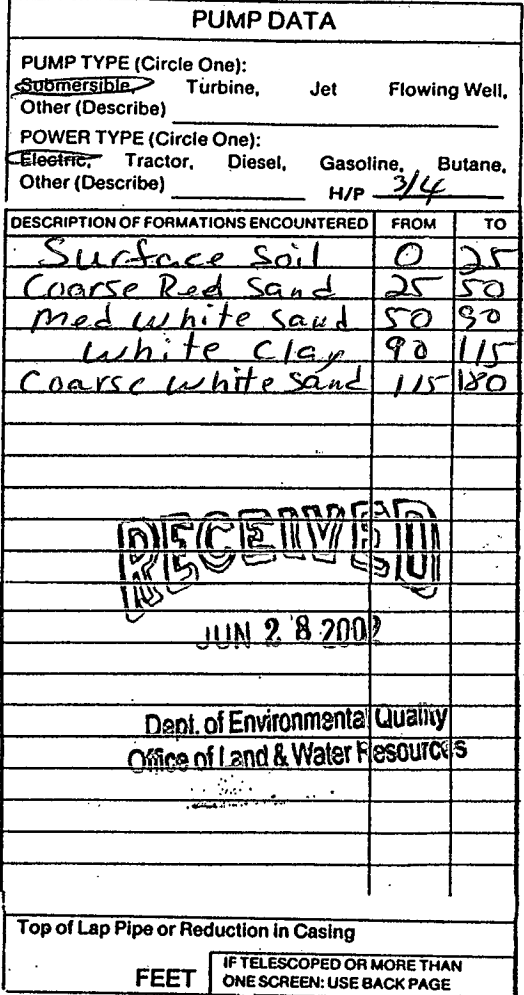 PUMP DATA
PUMP TYPE (Circle One):
Submersible, Turbine, Jet Flowing Well,
Other (Describe)
POWER TYPE (Circle One):
Electric, Tractor, Diesel, Gasoline, Butane,
Other (Describe) H/P 3/4
DESCRIPTION OF FORMATIONS ENCOUNTERED FROM TO
Surface Soil 0 25
Coarse Red Sand 25 50
Med White Sand 50 90
White Clay 90 115
Coarse White Sand 115 180
RECEIVED
JUN 28 2002
Dept. of Environmental Quality
Office of Land & Water Resources
Top of Lap Pipe or Reduction in Casing
FEET IF TELESCOPED OR MORE THAN
ONE SCREEN: USE BACK PAGE